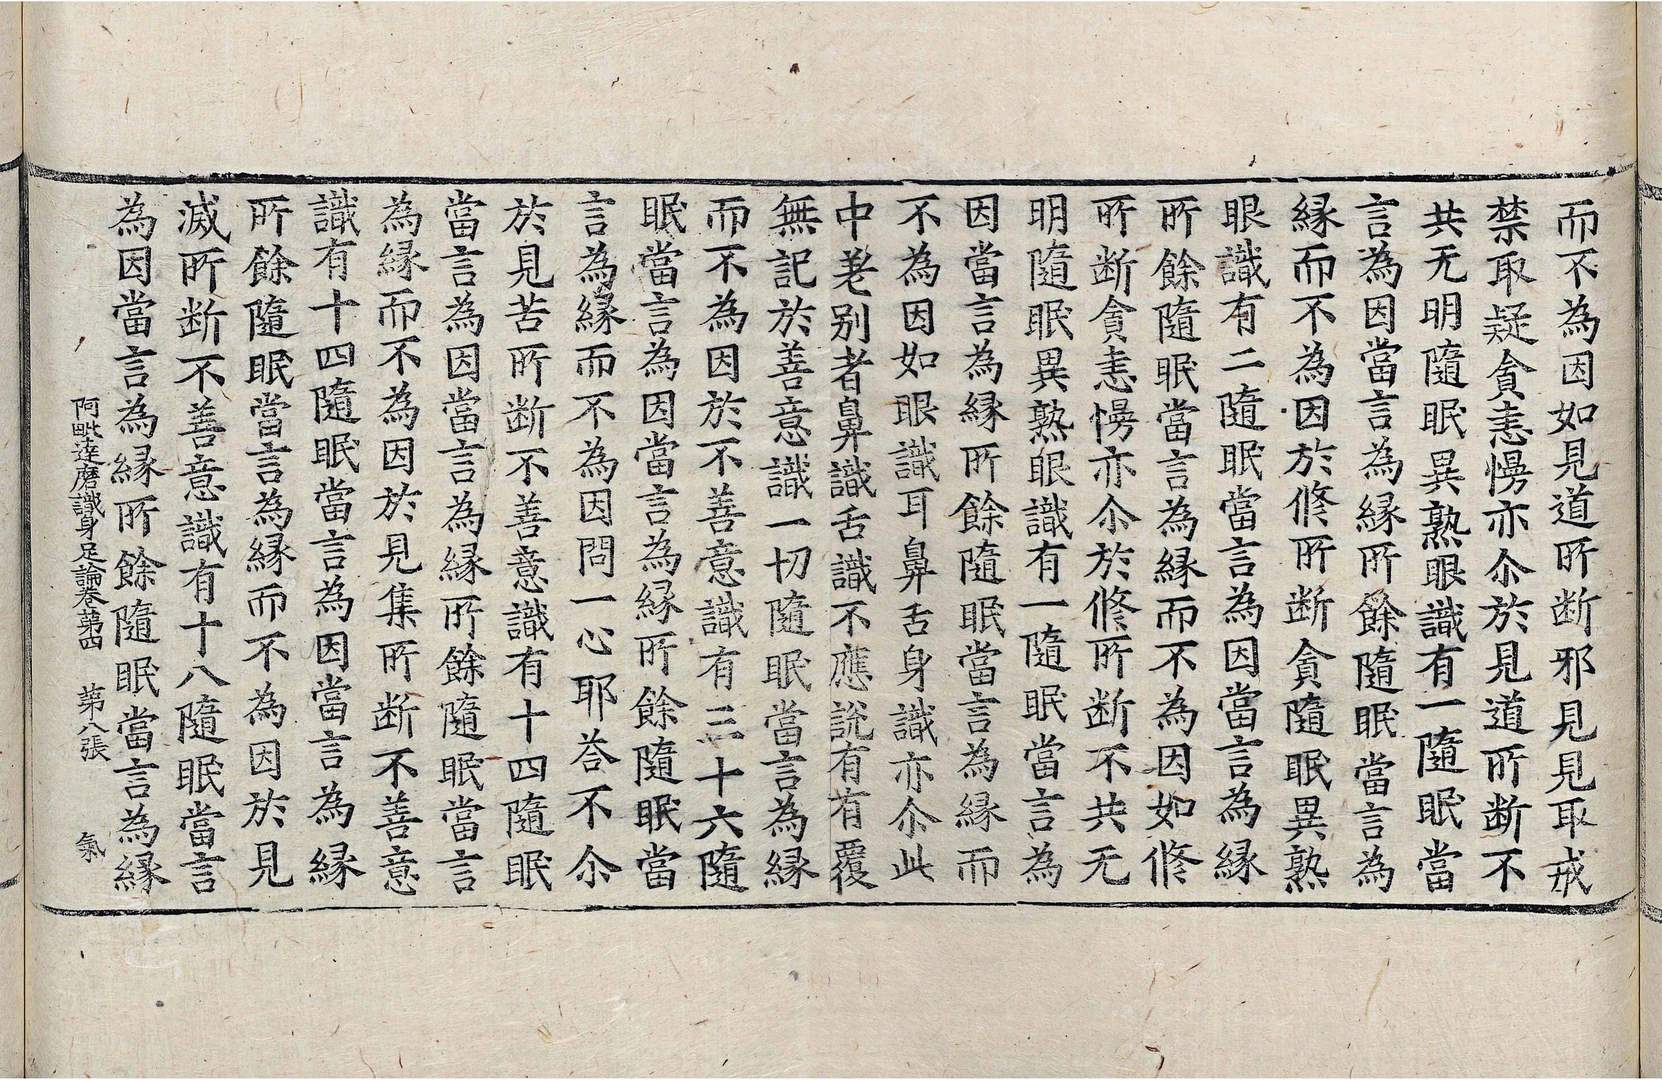 而不為因如見道所断邪見見取戒
禁取疑貪恚慢亦尒於見道所断不
共无明隨眠異熟眼識有一隨眠當
言為因當言為緣所餘隨眠當言為
緣而不為因於修所断貪隨眠異熟
眼識有二隨眠當言為因當言為緣
所餘隨眠當言為緣而不為因如修
所断貪恚慢亦尒於修所断不共无
明隨眠異熟眼識有一隨眠當言為
因當言為緣所餘隨眠當言為緣而
不為因如眼識耳鼻舌身識亦尒此
中差别者鼻識舌識不應說有有覆
無記於善意識一切隨眠當言為緣
而不為因於不善意識有三十六隨
眠當言為因當言為緣所餘隨眠當
言為緣而不為因問一心耶荅不尒
於見苦所断不善意識有十四隨眠
當言為因當言為緣所餘隨眠當言
為緣而不為因於見集所断不善意
識有十四隨眠當言為因當言為緣
所餘隨眠當言為緣而不為因於見
滅所断不善意識有十八隨眠當言
為因當言為緣所餘隨眠當言為緣
阿毗達磨識身足論卷苐四 苐八張 氣